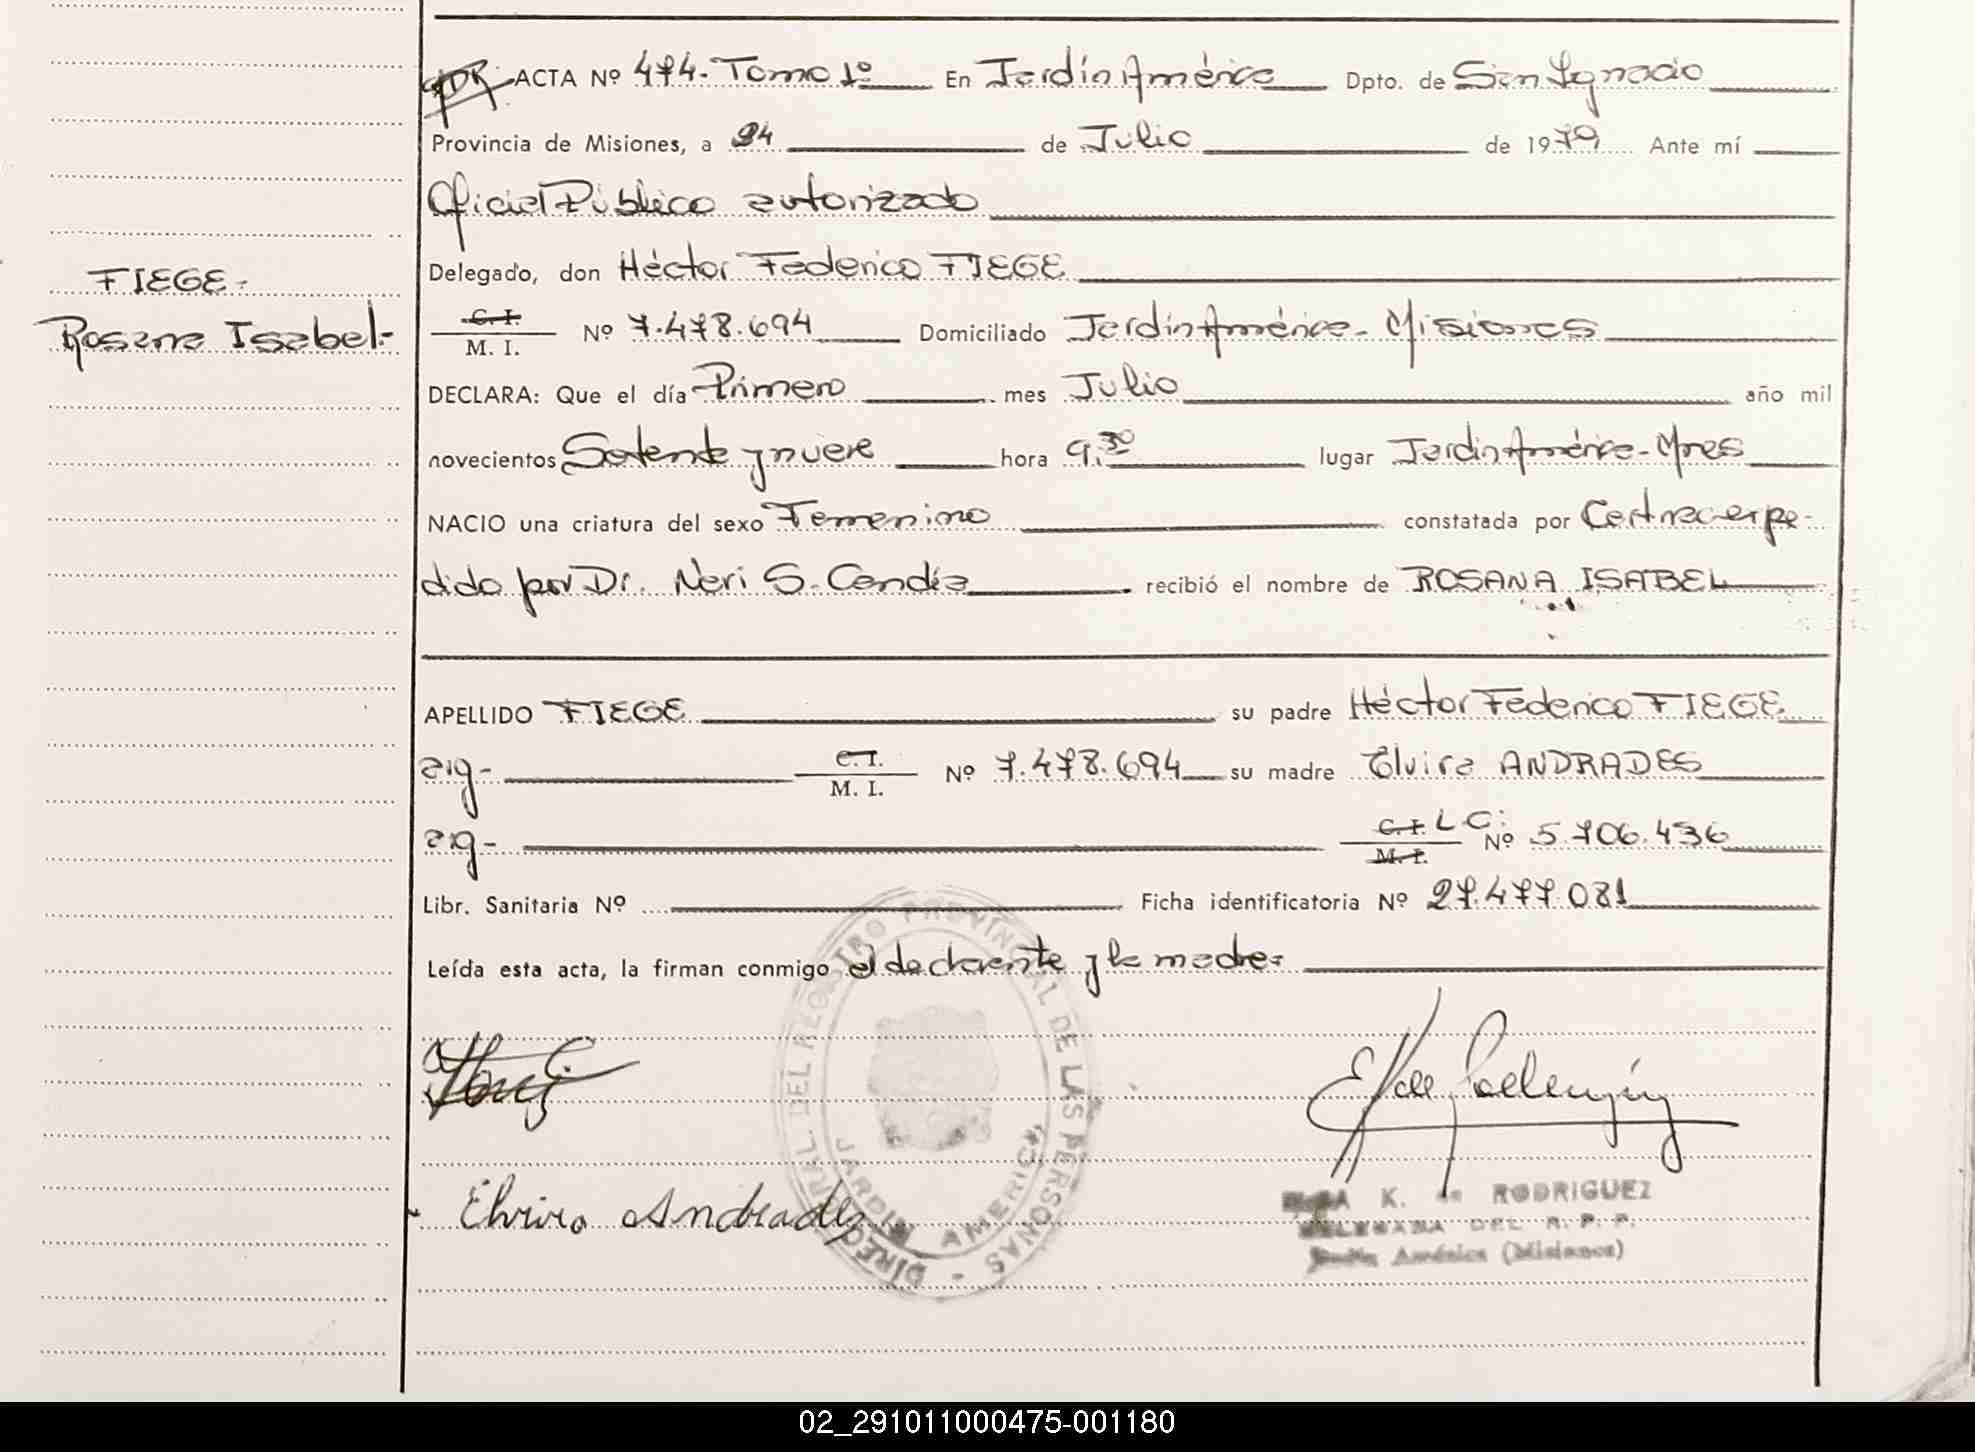 ACTA Nº 474.- Tomo 1º En Jardín América Dpto. de San Ignacio
Provincia de Misiones, a 24 de Julio de 1979 Ante mí
Oficial Público autorizado
FIEGE-
Delegado, don Héctor Federico FIEGE
Rosana Isabel.-
C. I. M. I. Nº 7.478.694 Domiciliado Jardín América - Misiones
DECLARA: Que el día Primero mes Julio año mil
novecientos Setenta y nueve hora 9,30 lugar Jardín América - Mnes
NACIO una criatura del sexo Femenino constatada por
dido por Dr. Neri S. Candia recibió el nombre de ROSANA ISABEL
APELLIDO FIEGE su padre Héctor Federico FIEGE
arg- C. I. M. I. Nº 7.478.694 su madre Elvira ANDRADES
arg- C. I. M. I. L C. Nº 5.706.436
Libr. Sanitaria Nº Ficha identificatoria Nº 27.477.081
Leída esta acta, la firman conmigo el declarante y la madre
DIREC. GRAL. DEL REGISTRO PROVINCIAL DE LAS PERSONAS -
JARDIN AMERICA
Elvira Andrades
K. de RODRIGUEZ
DEL R. P. P.
Jardín América (Misiones)
02_291011000475-001180